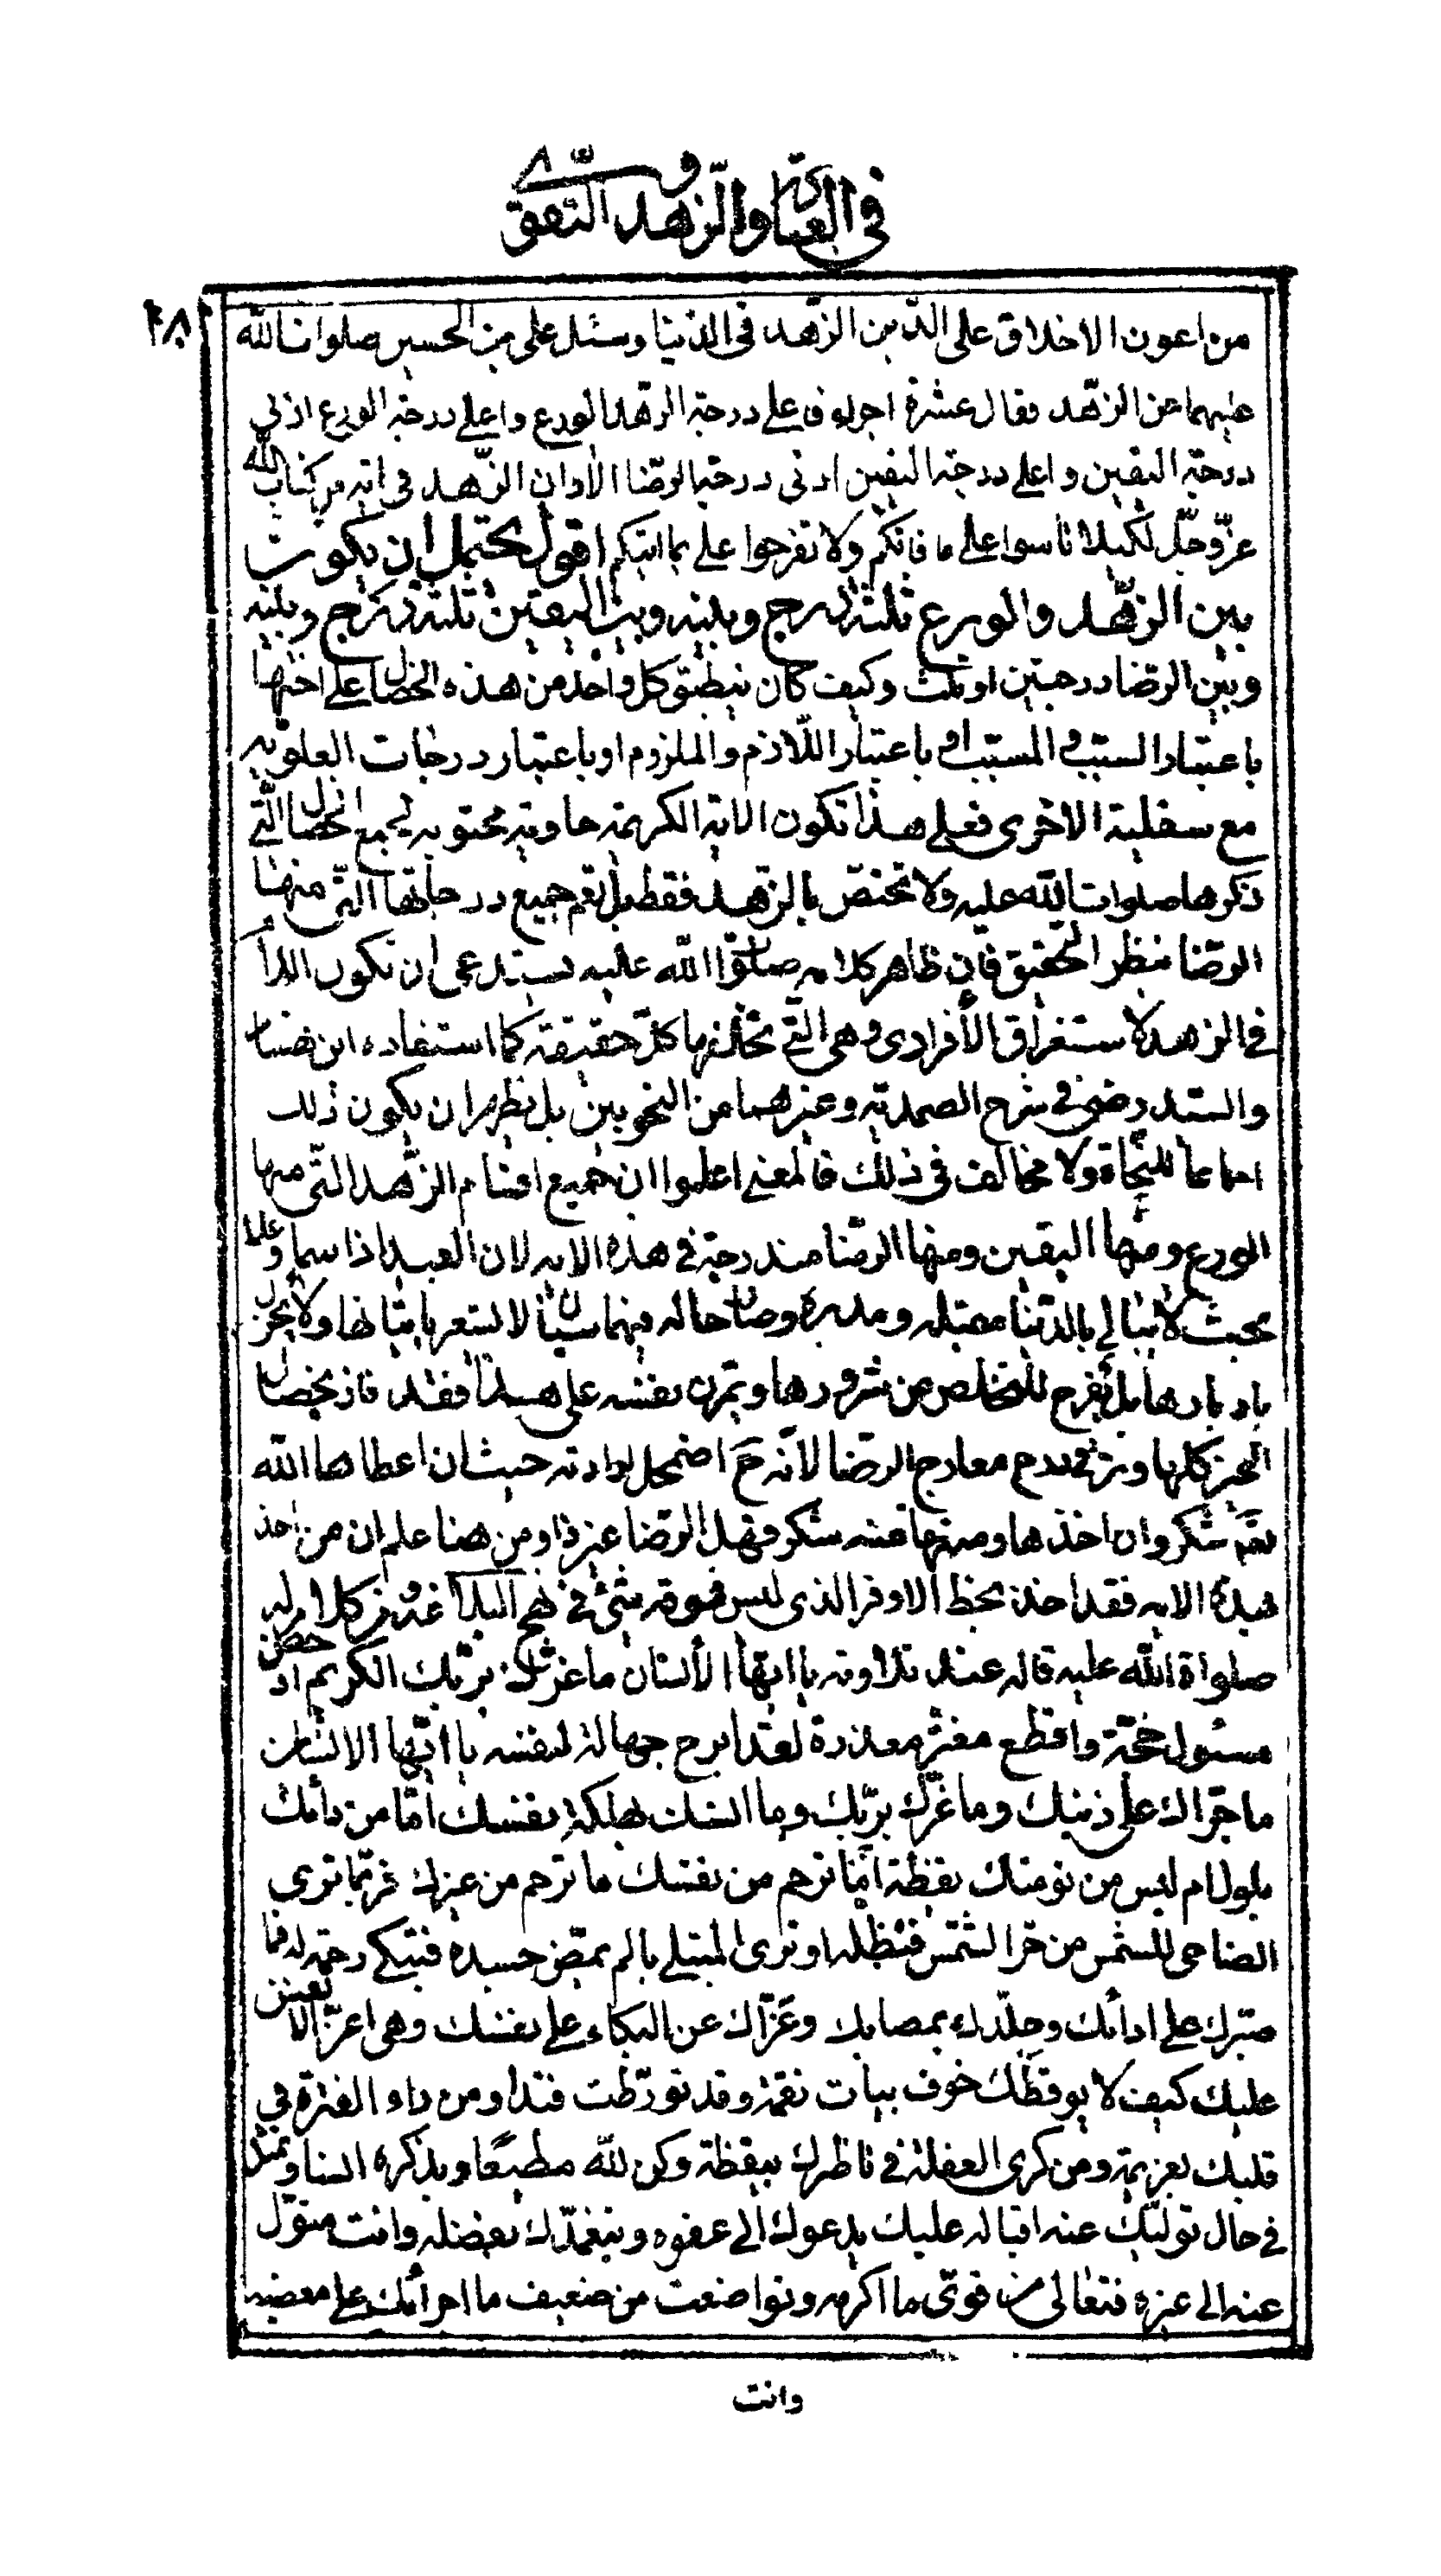 في العبادة والزهد والتقوى
٢٨١
من اعون الاخلاق على الدين الزهد في الدنيا وسئل علي بن الحسين صلوات الله
عليهما عن الزهد فقال عشرة اجزاء فاعلى درجة الزهد الورع واعلى درجة الورع ادنى
درجة اليقين واعلى درجة اليقين ادنى درجة الرضا الا وان الزهد في اية من كتاب الله
عز وجل لكيلا تاسوا على ما فاتكم ولا تفرحوا على بما اتيكم اقول يحتمل ان يكون
بين الزهد والورع ثلثة درج وبينه وبين اليقين ثلثة درج وبينه
وبين الرضا درجتين او ثلث وكيف كان ينطبق كل واحد من هذه الخصال على اختها
باعتبار السبب والمسبب او باعتبار اللازم والملزوم او باعتبار درجات العلوية
مع سفلية الاخرى فعلى هذا تكون الاية الكريمة حاوية محتوية لجميع الخصال التي
ذكرها صلوات الله عليه ولا تختص بالزهد فقط بل تعم جميع درجاتها التي منها
الرضا بنظر التحقيق فان ظاهر كلامه صلوات الله عليه يستدعى ان تكون اللام
في الزهد لاستغراق الأفرادى وهي التي تخلفها كل حقيقة كما استفاده ابن هشام
والسيد رضى في شرح الصمدية وغيرهما من النحويين بل نظره ان يكون ذلك
اجماعا للنحاة ولا مخالف في ذلك فالمعنى اعلموا ان جميع اقسام الزهد التي منها
الورع ومنها اليقين ومنها الرضا مندرجة في هذه الاية لان العبد اذا سما وعلا
بحيث لا يبالى بالدنيا مقبلة ومدبرة وصار حاله فيهما سيان لا يشعر باقبالها ولا يحزن
بادبارها بل يفرح للتخلص من شرورها وتمرن نفسه على هذا فقد فاز بخصال
الخير كلها وترقى مدرج معارج الرضا لأنه ح اضمحل ارادته حيث ان اعطاها الله
نعم شكر وان اخذها ومنعها عنه شكر فهل الرضا غير ذا ومن هنا علم ان من اخذ
بهذه الاية فقد اخذ بحظ الاوفر الذي ليس فوقه شئ في نهج البلاغة ومن كلام له
صلواة الله عليه قاله عند تلاوته يا ايها الأنسان ما غرك بربك الكريم ادحض
مسئول حجة واقطع مغتر معذرة لقد ابرح جهالة لنفسه يا ايها الانسان
ما جراك على ذنبك وما غرك بربك وما انسك بهلكة نفسك اما من دائك
بلول ام ليس من نومتك يقظة اما ترحم من نفسك ما ترحم من غيرك فربما ترى
الضاحى للشمس من حر الشمس فتظله او ترى المبتلى بالم يمض جسده فتبكى رحمة له فما
صبرك على دائك وجلدك بمصابك وعزاك عن البكاء على نفسك وهي اعز الانفس
عليك كيف لا يوقظك خوف بيات نقمة وقد تورطت فتداو من داء الفترة في
قلبك بعزيمة ومن كرى الغفلة في ناظرك بيقظة وكن لله مطيعا وبذكره انسا وتمثل
في حال توليك عنه اقباله عليك يدعوك الى عفوه ويتغمدك بفضله وانت متول
عنه الى غيره فتعالى من قوى ما اكرمه وتواضعت من ضعيف ما اجرأك على معصيته
وانت